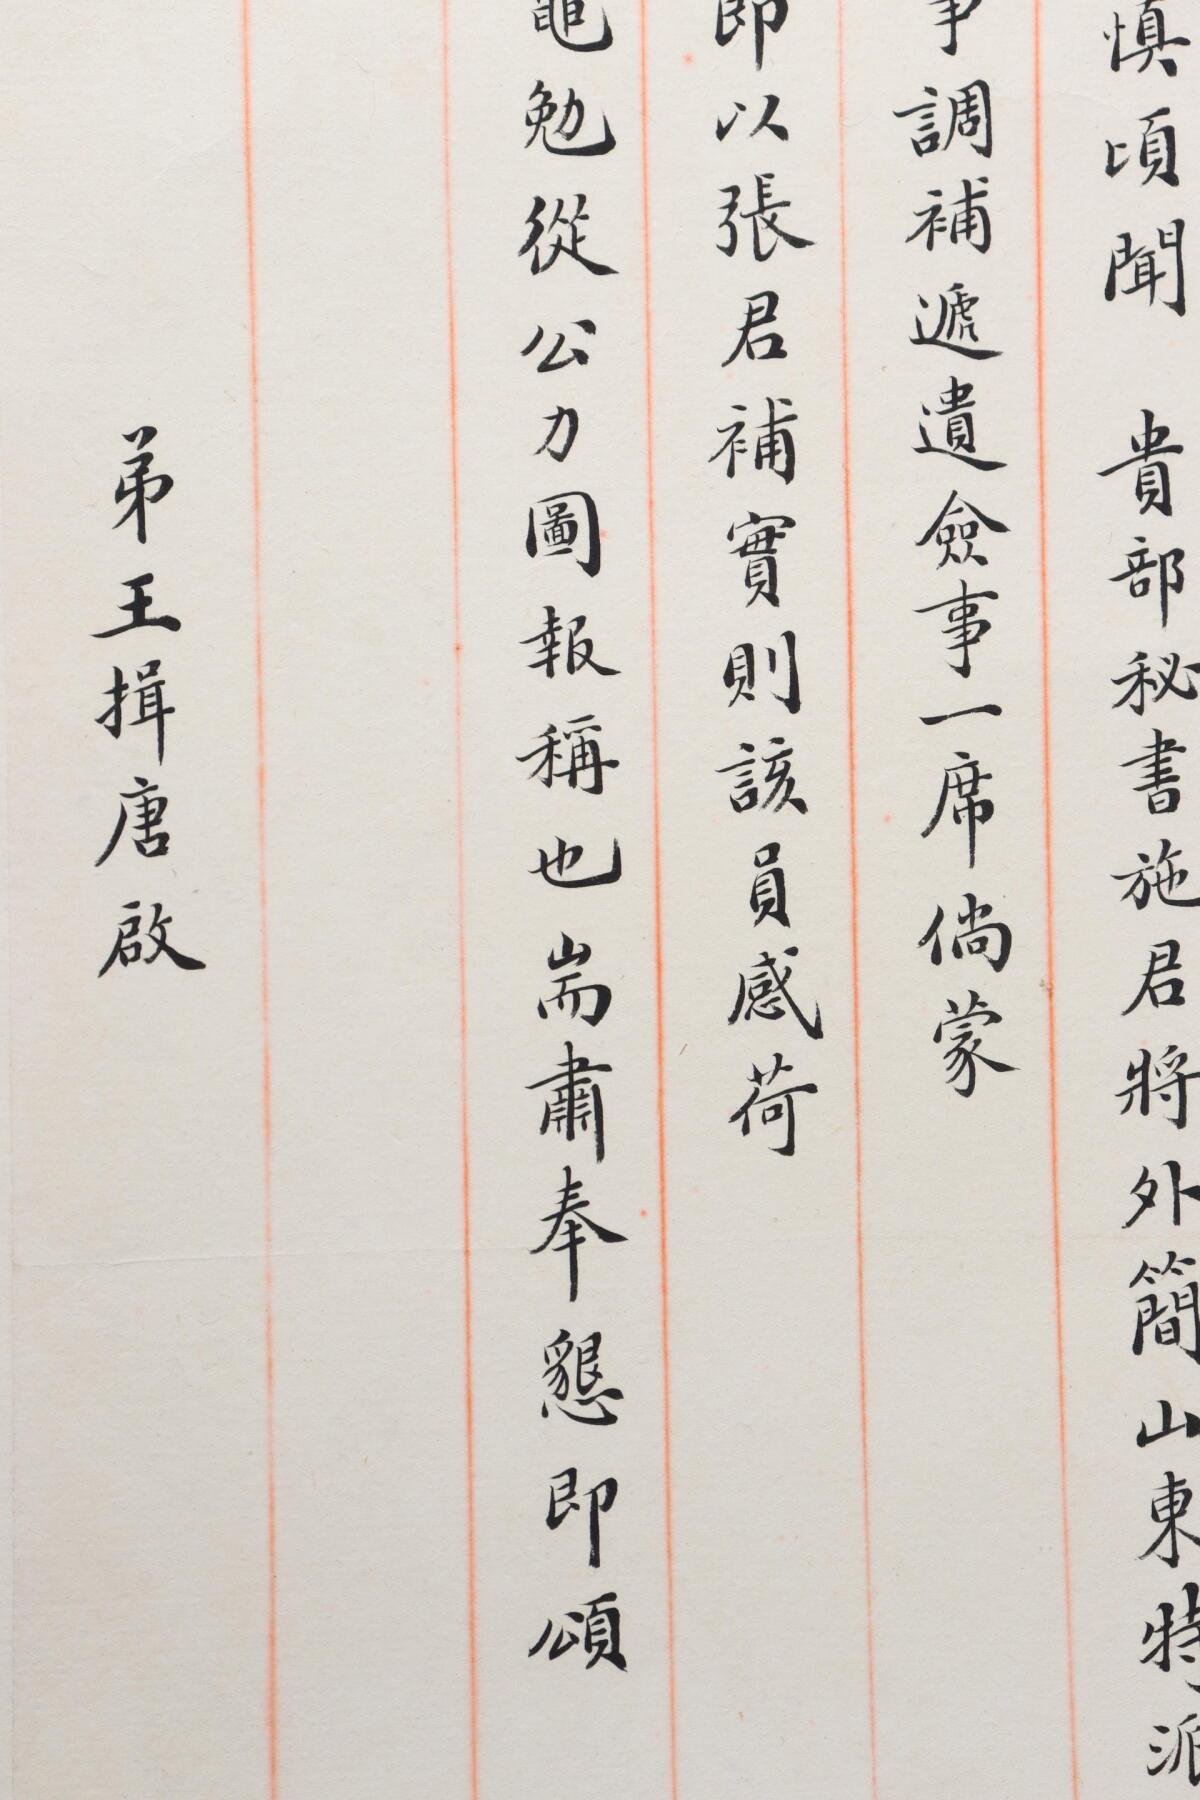 慎頃聞　貴部秘書施君將外簡山東特派
事調補遞遺僉事一席倘蒙
即以張君補實則該員感荷
黽勉從公力圖報稱也耑肅奉懇即頌
弟王揖唐啟